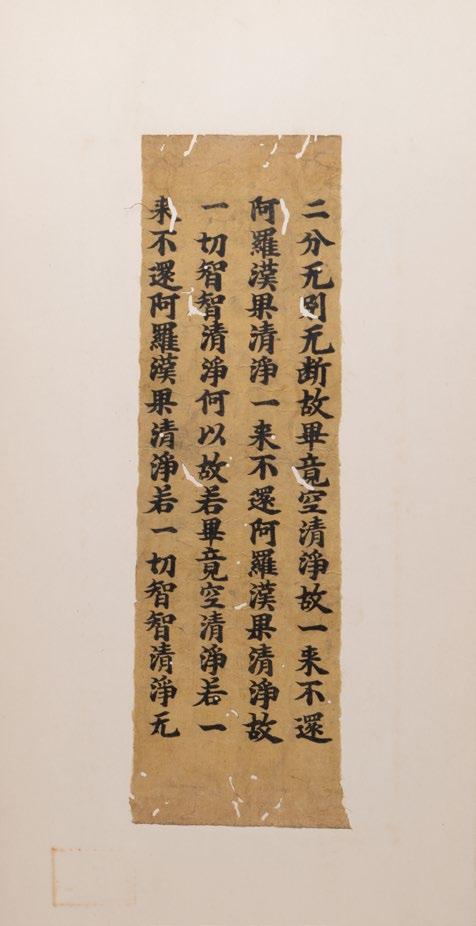 二分无別无断故畢竟空清淨故一来不還
阿羅漢果清淨一来不還阿羅漢果清淨故
一切智智清淨何以故若畢竟空清淨若一
来不還阿羅漢果清淨若一切智智清淨无